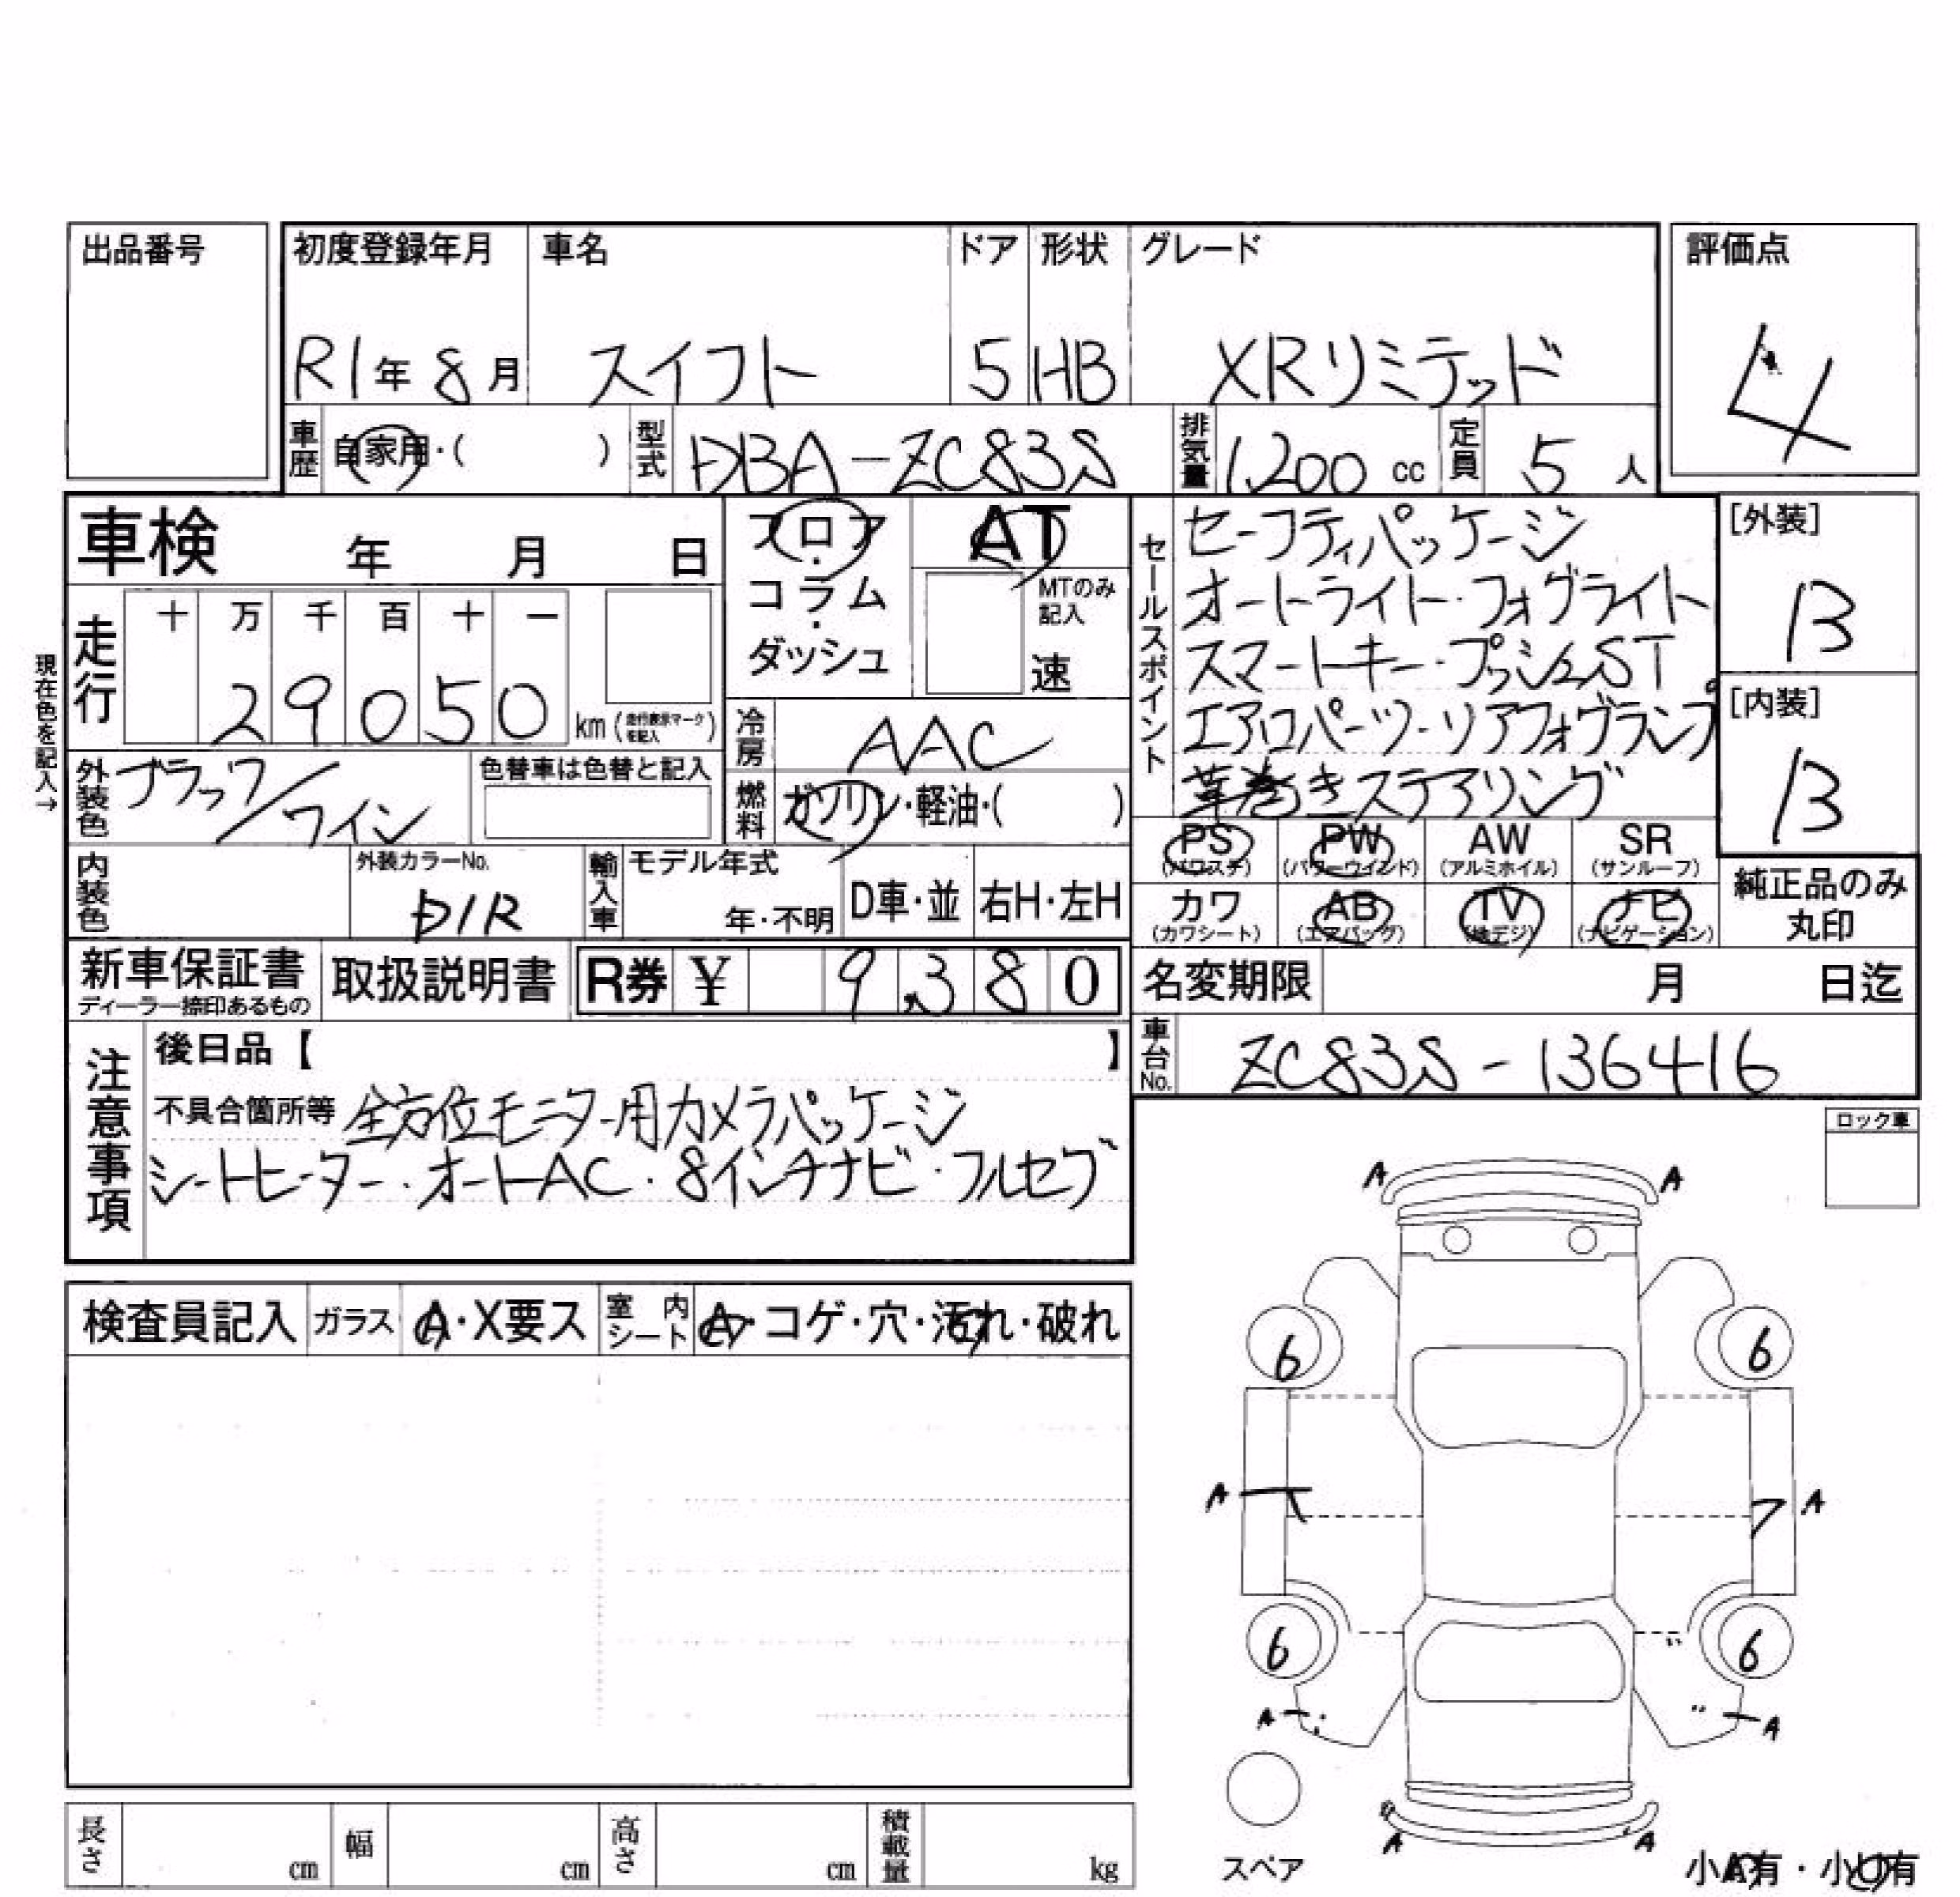 出品番号
初度登録年月 車名 ドア 形状 グレード 評価点
R1年 8月 スイフト 5 HB XRリミテッド 4
車歴 自家用・( ) 型式 DBA-ZC83S 排気量 1,200 cc 定員 5 人
車検 年 月 日
フロア・コラム・ダッシュ
AT
MTのみ記入
速
走行 十 万 千 百 十 一
29050 km (走行表示マークを記入)
現在色を記入→
外装色 ブラック/ワイン
色替車は色替と記入
冷房 AAC
燃料 ガソリン・軽油・( )
セールスポイント
セーフティパッケージ
オートライト・フォグライト
スマートキー・プッシュST
エアロパーツ・リアフォグランプ
革巻きステアリング
[外装]
B
[内装]
B
PS (パワステ) PW (パワーウインド) AW (アルミホイル) SR (サンルーフ)
カワ (カワシート) AB (エアバッグ) TV (地デジ) ナビ (ナビゲーション)
純正品のみ丸印
内装色 外装カラーNo. D1R
輸入車 モデル年式 年・不明 D車・並 右H・左H
新車保証書 ディーラー捺印あるもの 取扱説明書 R券 ¥ 9,380
名変期限 月 日迄
車台No. ZC83S-136416
注意事項
後日品【 】
不具合箇所等 全方位モニター用カメラパッケージ
シートヒーター・オートAC・8インチナビ・フルセグ
ロック車
検査員記入 ガラス A・X要ス 室内シート A・コゲ・穴・汚れ・破れ
A A
6 6
A A
6 6
A A
A A
スペア
小A有・小U有
長さ cm 幅 cm 高さ cm 積載量 kg